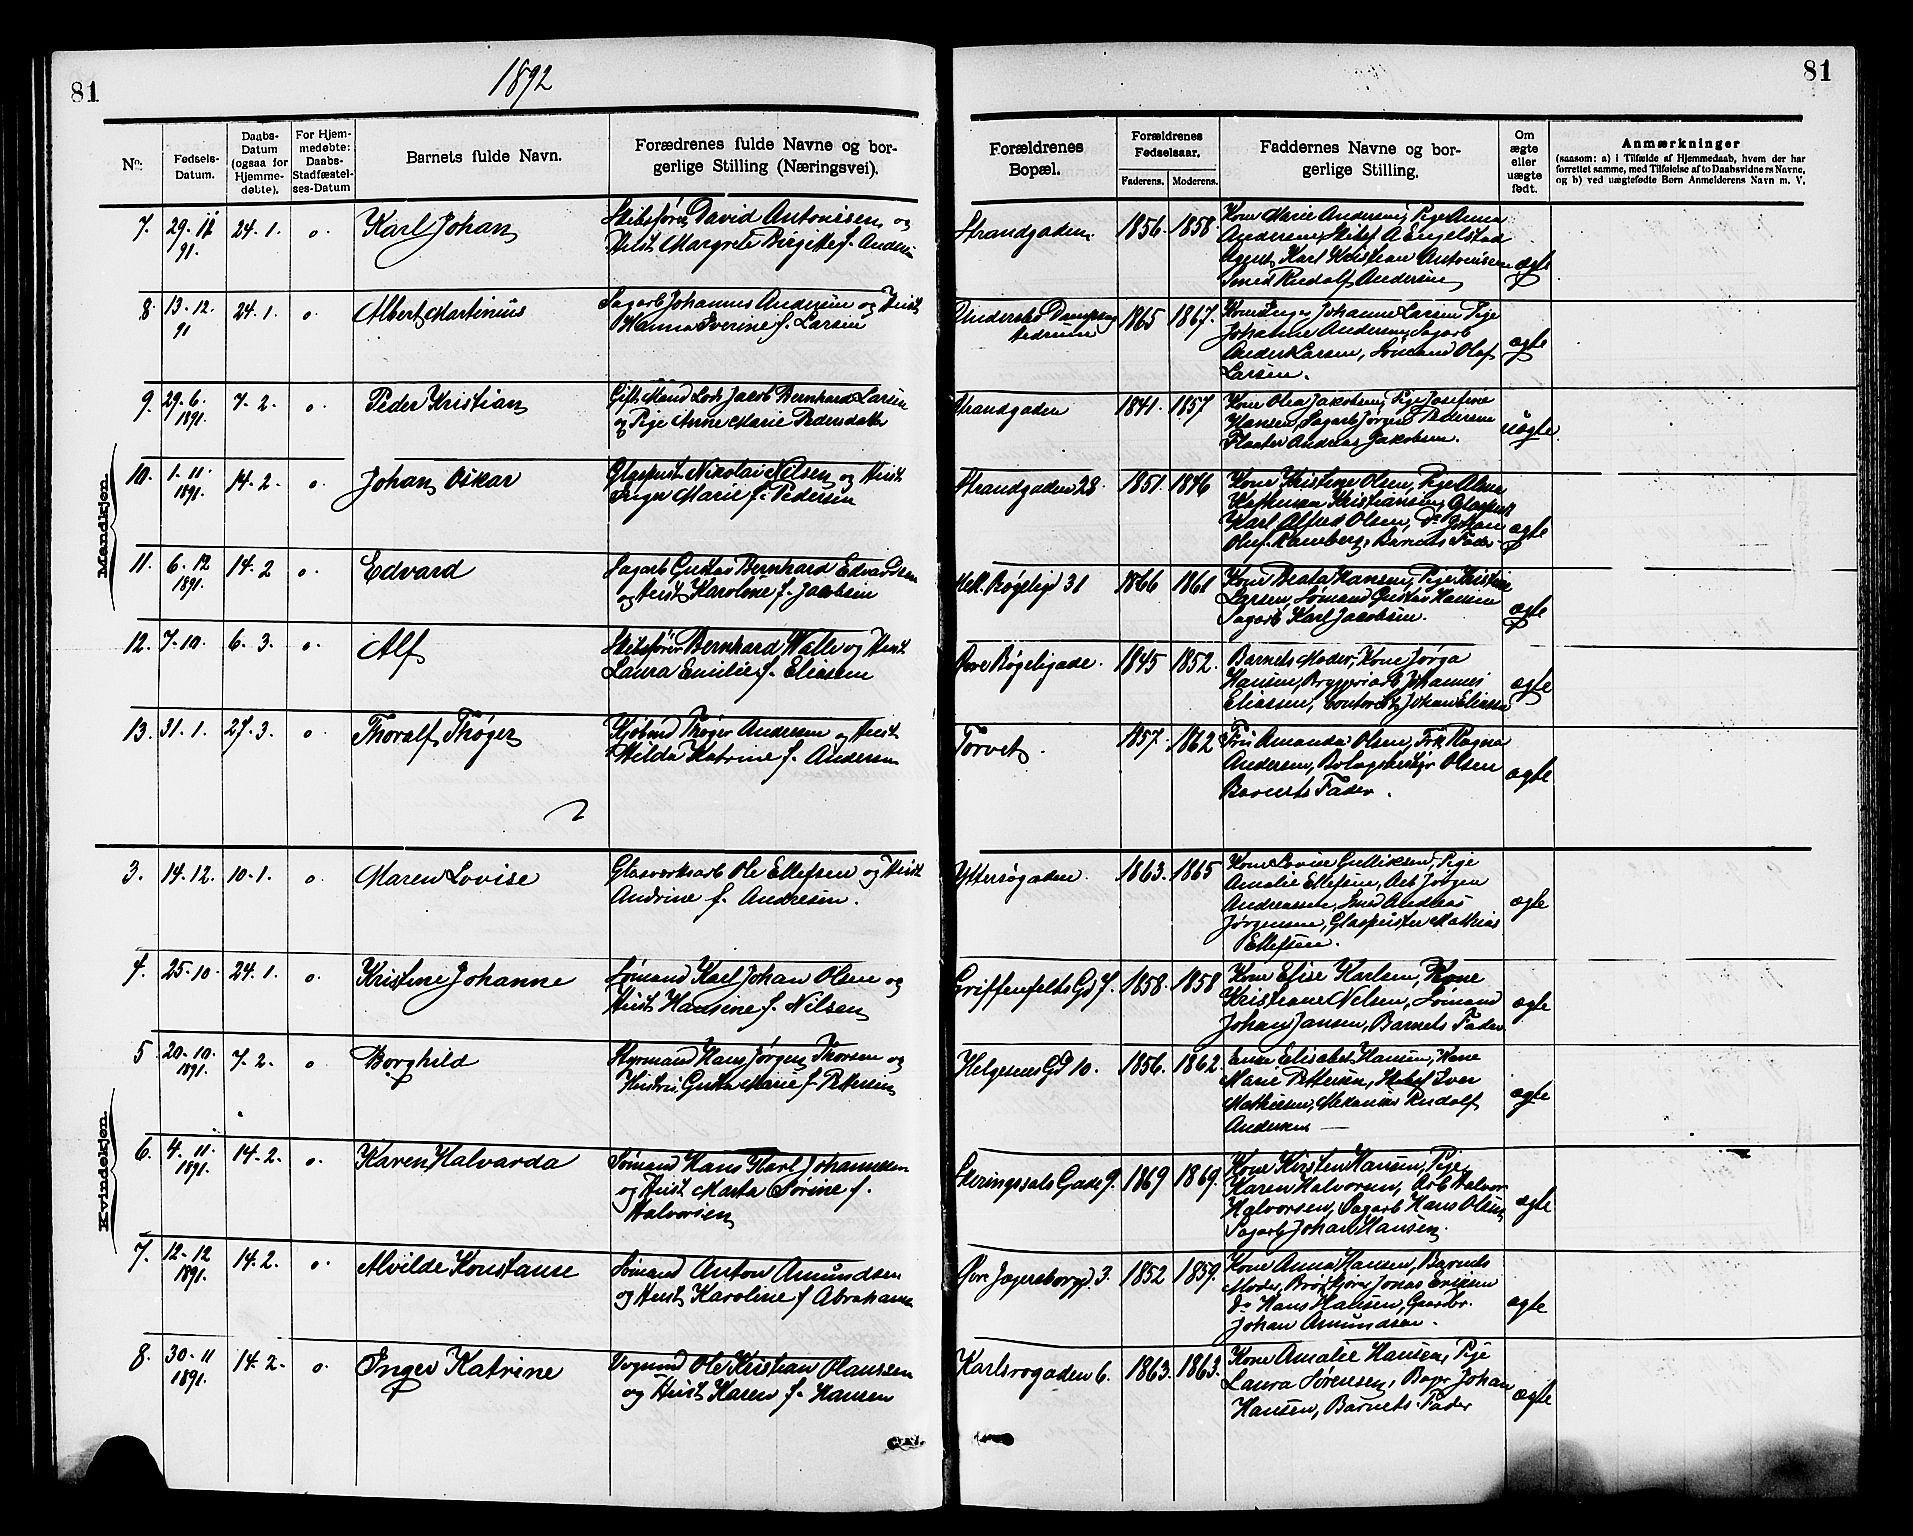 81
1892
81
No.
Fødsels-
Datum.
Daabs-
Datum
(ogsaa for
Hjemme-
døbte).
For Hjem-
medøbte:
Daabs-
Stadfæstel-
ses-Datum
Barnets fulde Navn.
Forædrenes fulde Navne og bor-
gerlige Stilling (Næringsvei).
Forældrenes
Bopæl.
Forældrenes
Fødselsaar.
Faderens.
Moderens.
Faddernes Navne og bor-
gerlige Stilling.
Om
ægte
eller
uægte
født.
Anmærkninger
(saasom: a) i Tilfælde af Hjemmedaab, hvem der har
forrettet samme, med Tilføielse af to Daabsvidners Navne,
og b) ved uægtefødte Børn Anmelderens Navn m. V.
Mandkjøn.
7. 29. 11 91. 24. 1. o. Karl Johan
Skibsfører David Antonisen og
Hust. Margrete Birgitte f. Anders
Strandgaden. 1856. 1858
Kone Marie Andersen, Pige Anna
Andersen, Skibsf A Engelstad
Agent Karl Kristian Antonisen
Smed Rudolf Andersen
ægte
8. 13. 12. 91 24. 1. o. Albert Martinius
Sagarb Johannes Andersen og Hust
Hanna Iverine f. Larsen
1865 1867.
Kone Inger Johanne Larsen, Pige
Johanne Andersen, Sagarb
Anders Larsen, Sømand Olaf
Larsen.
ægte
9. 29. 6. 1891. 7. 2. o. Peder Kristian
Gift Mand Lods Jacob Bernhard Larsen
og Pige Anne Marie Pedersdatter
Strandgaden 1841. 1857
Kone Olea Jakobsen, Pige Josefine
Hansen, Sagarb Jørgen Pedersen
Andreas Jakobsen.
uægte
10. 1. 11. 1891. 14. 2. o. Johan Oskar
Glaspust. Nikolai Nilsen og Hust
Inger Marie f. Pedersen
Strandgaden 28. 1851. 1846
Kone Kristine Olsen, Pige
Kristiansen, Glaspust
Karl Alfred Olsen, Do Johan
Oluf Ramberg, Barnets Fader
ægte
11. 6. 12 1891. 14. 2 o. Edvard
Sagarb Gustav Bernhard Edvardsen
og Hust Karoline f. Jacobsen
Bøgeligd 31 1866 1861
Kone Beata Hansen, Pige Kristine
Larsen, Sømand Gustav Hansen
Sagarb Karl Jacobsen.
ægte
12. 7. 10. 6. 3. o. Alf
Skibsfører Bernhard Walle og Hust
Laura Emilie f. Eliasen
Øvre Bøgeligade. 1845 1852.
Barnets Moder, Kone Jørga
Hansen, Bryggeriarb Johannes
Eliassen, Contorist Johan Eliassen
ægte
13. 31. 1. 27. 3. o. Thoralf Thøger
Kjøbmd Thøger Andersen og Hust
Hilda Katrine f. Andersen
Torvet. 1857. 1862
Fru Amanda Olsen, Frk Ragna
Andersen, Bolagsbestyr Olsen
Barnets Fader.
ægte
Kvindekjøn.
3. 14. 12. 10. 1. o. Maren Lovise
Glasværksarb Ole Ellefsen og Hust
Andrine f. Andresen.
Yttersøgaden. 1863. 1865
Kone Lovise Gulliksen, Pige
Amalie Ellefsen, Arb Jørgen
Andreassen, Smed Andreas
Jørgensen, Glaspuster Mathias
Ellefsen.
ægte
4. 25. 10. 24. 1. o. Kristine Johanne
Sømand Karl Johan Olsen og
Hust Hansine f. Nilsen
Griffenfelts Gd 1. 1658. 1858
Kone Elise Karlsen, Kone
Kristiane Nilsen, Sømand
Johan Jansen, Barnets Fader
ægte
5 20. 10. 1891. 7. 2. o Borghild
Styrmand Hans Jørgen Thorsen og
Hustru Gusta Marie f. Pettersen
Helgesens Gd 10. 1856. 1862.
Enke Elisabet Hansen, Kone
Marie Pettersen, Skibsf Iver
Mathiesen, Mekaniker Rudolf
Andersen
ægte
6. 4. 11. 1891. 14. 2. o. Karen Halvarda
Sømand Hans Karl Johannesen
og Hust Marta Sørine f.
Halvorsen
Skiringssals Gade 9. 1869 1869.
Kone Kirsten Hansen, Pige
Karen Halvorsen, Arb Halvor
Halvorsen, Sagarb Hans Olsen
Sagarb Johan Hansen.
ægte
7. 12. 12 1891. 14. 2. o. Alvilde Konstanse
Sømand Anton Amundsen
og Hust Karoline f Abrahams
Øvre Jegersborggd. 3. 1852 1859.
Kone Anna Hansen, Barnets
Moder, Jonas Eriksen
do Hans Hansen, Gaardbr.
Johan Amundsen.
ægte
8. 30. 11 1891. 14. 2. o. Inger Katrine
Vognmd Ole Kristian Olaussen
og Hust Karen f. Hansen
Karlsrogaden 6. 1863. 1863.
Kone Amalie Hansen, Pige
Laura Sørensen, Johan
Hansen, Barnets Fader
ægte